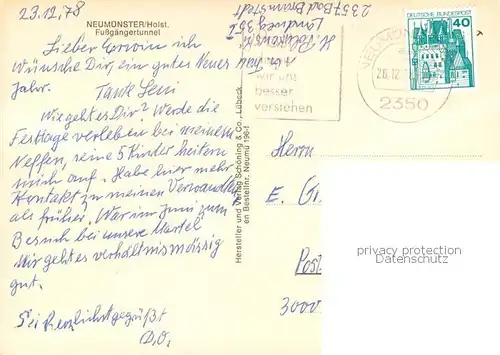 23.12.78
NEUMÜNSTER/Holst.
Fußgängertunnel
Lieber Erwin ich
Wünsche Dir, ein gutes Neues
Jahr.
Tante Leni
Wie geht es Dir? Werde die
Festtage verleben bei meinem
Neffen, seine 5 Kinder heitern
mich auf. Habe hier mehr
Kontakt zu meinen Verwandten
als früher. War im Juni zum
Besuch bei unsere Martel
Mir geht es verhältnismässig
gut.
Sei herzlichst gegrüßt
D.O.
2357 Bad Bramstedt
Landweg 35
Hersteller und Verlag Schöning & Co., Lübeck
en Bestellnr. Neumü 196-1
wir uns
besser
verstehen
NEUM
26.12.
2350
DEUTSCHE BUNDESPOST
40
Herrn
E. G
Post
3000
privacy protection
Datenschutz